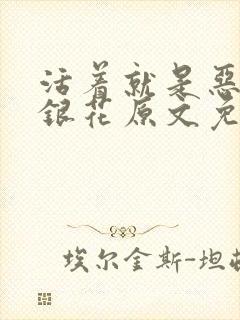 活着就是恶
银花原文免
埃尔金斯-坦